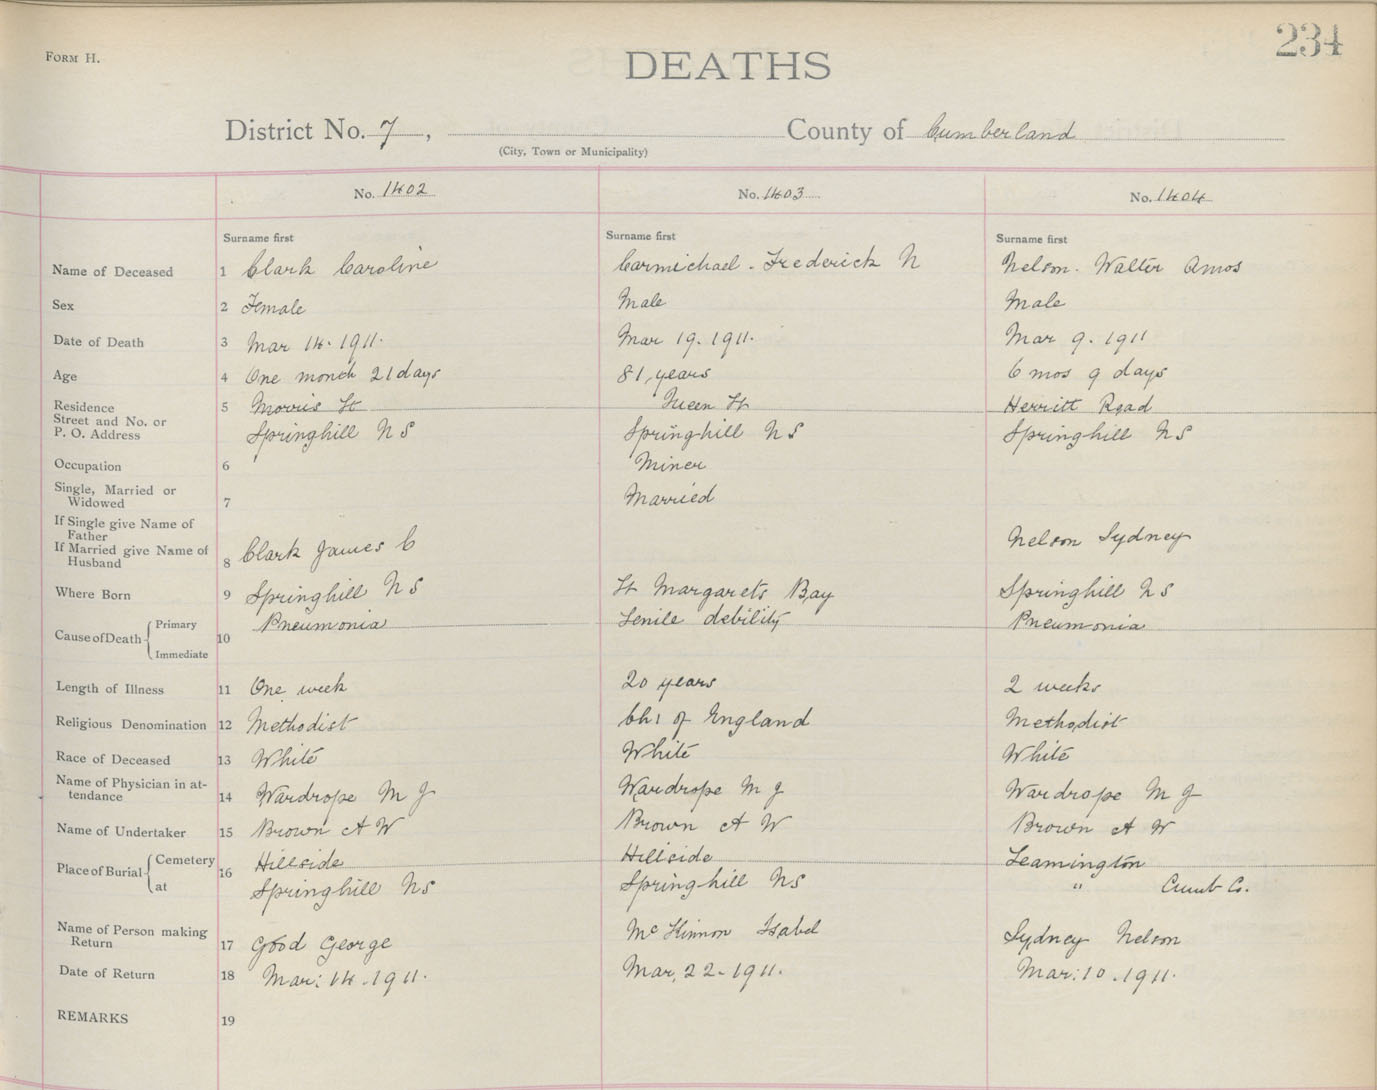 FORM H.
234
DEATHS
District No. 7, County of Cumberland
(City, Town or Municipality)
No. 1402 No. 1403 No. 1404
Surname first Surname first Surname first
Name of Deceased 1 Clark Caroline Carmichael. Frederick N Nelson. Walter Amos
Sex 2 Female Male Male
Date of Death 3 Mar 14. 1911. Mar 19. 1911. Mar 9. 1911
Age 4 One month 21 days 81, years 6 mos 9 days
Residence 5 Morris St Queen St Herritt Road
Street and No. or
P. O. Address Springhill N S Springhill N S Springhill N S
Occupation 6 Miner
Single, Married or
Widowed 7 Married
If Single give Name of
Father
If Married give Name of
Husband 8 Clark James C Nelson Sydney
Where Born 9 Springhill N S St Margarets Bay Springhill N S
Cause of Death { Primary 10 Pneumonia Senile debility Pneumonia
Immediate
Length of Illness 11 One week 20 years 2 weeks
Religious Denomination 12 Methodist Ch: of England Methodist
Race of Deceased 13 White White White
Name of Physician in at-
tendance 14 Wardrope M J Wardrope M J Wardrope M J
Name of Undertaker 15 Brown A W Brown A W Brown A W
Place of Burial { Cemetery 16 Hillside Hillside Leamington
at Springhill N S Springhill N S " Cumb Co.
Name of Person making
Return 17 Good George McKinnon Isabel Sydney Nelson
Date of Return 18 Mar: 14. 1911. Mar, 22 - 1911. Mar: 10. 1911.
REMARKS 19